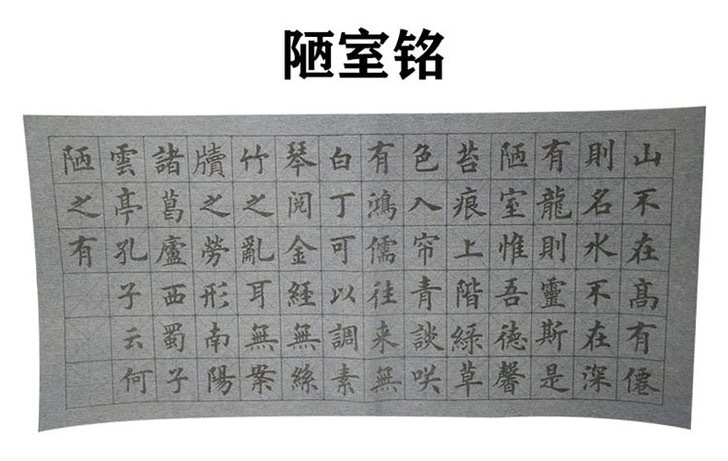 陋室铭
山不在髙有僊
則名水不在深
有龍則靈斯是
陋室惟吾德馨
苔痕上階緑草
色入帘青談咲
有鴻儒往来無
白丁可以調素
琴閱金經無絲
竹之亂耳無案
牘之勞形南陽
諸葛廬西蜀子
雲亭孔子云何
陋之有